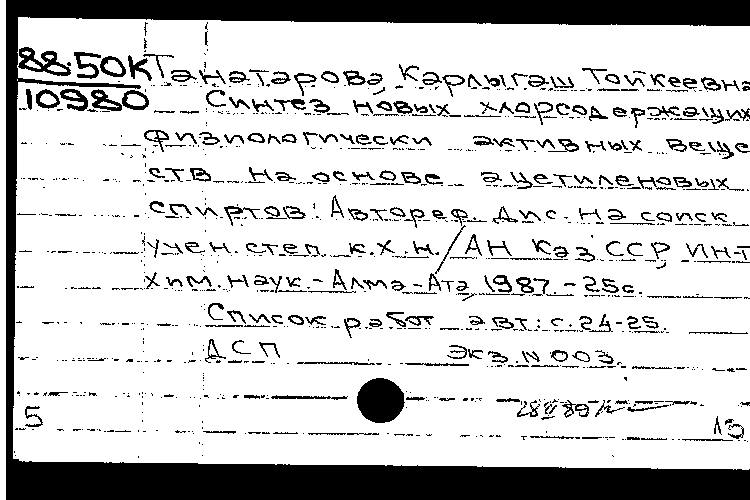 88-50К Танатарова, Карлыгаш Тойкеевна
10980 Синтез новых хлорсодержащих
физиологически активных веще
ств на основе ацетиленовых
спиртов: Автореф. дис. на соиск.
учен. степ. к.х.н. / АН Каз ССР, ИН-Т
хим. наук. - Алма-Ата, 1987. - 25с.
Список работ авт.: с. 24-25.
ДСП экз. N 003.
5